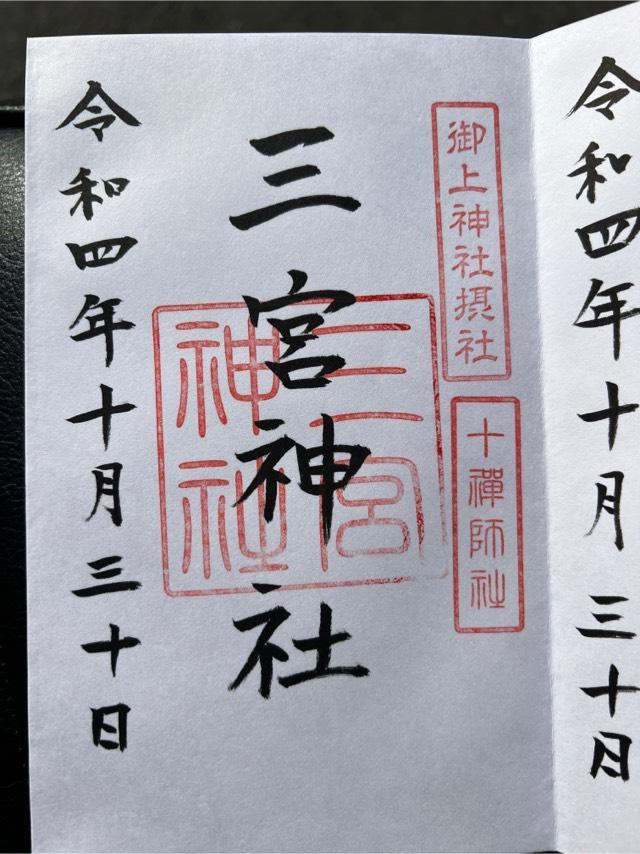 令和四年十月三十日
御上神社摂社
十禅師社
三宮神社
三宮神社
令和四年十月三十日